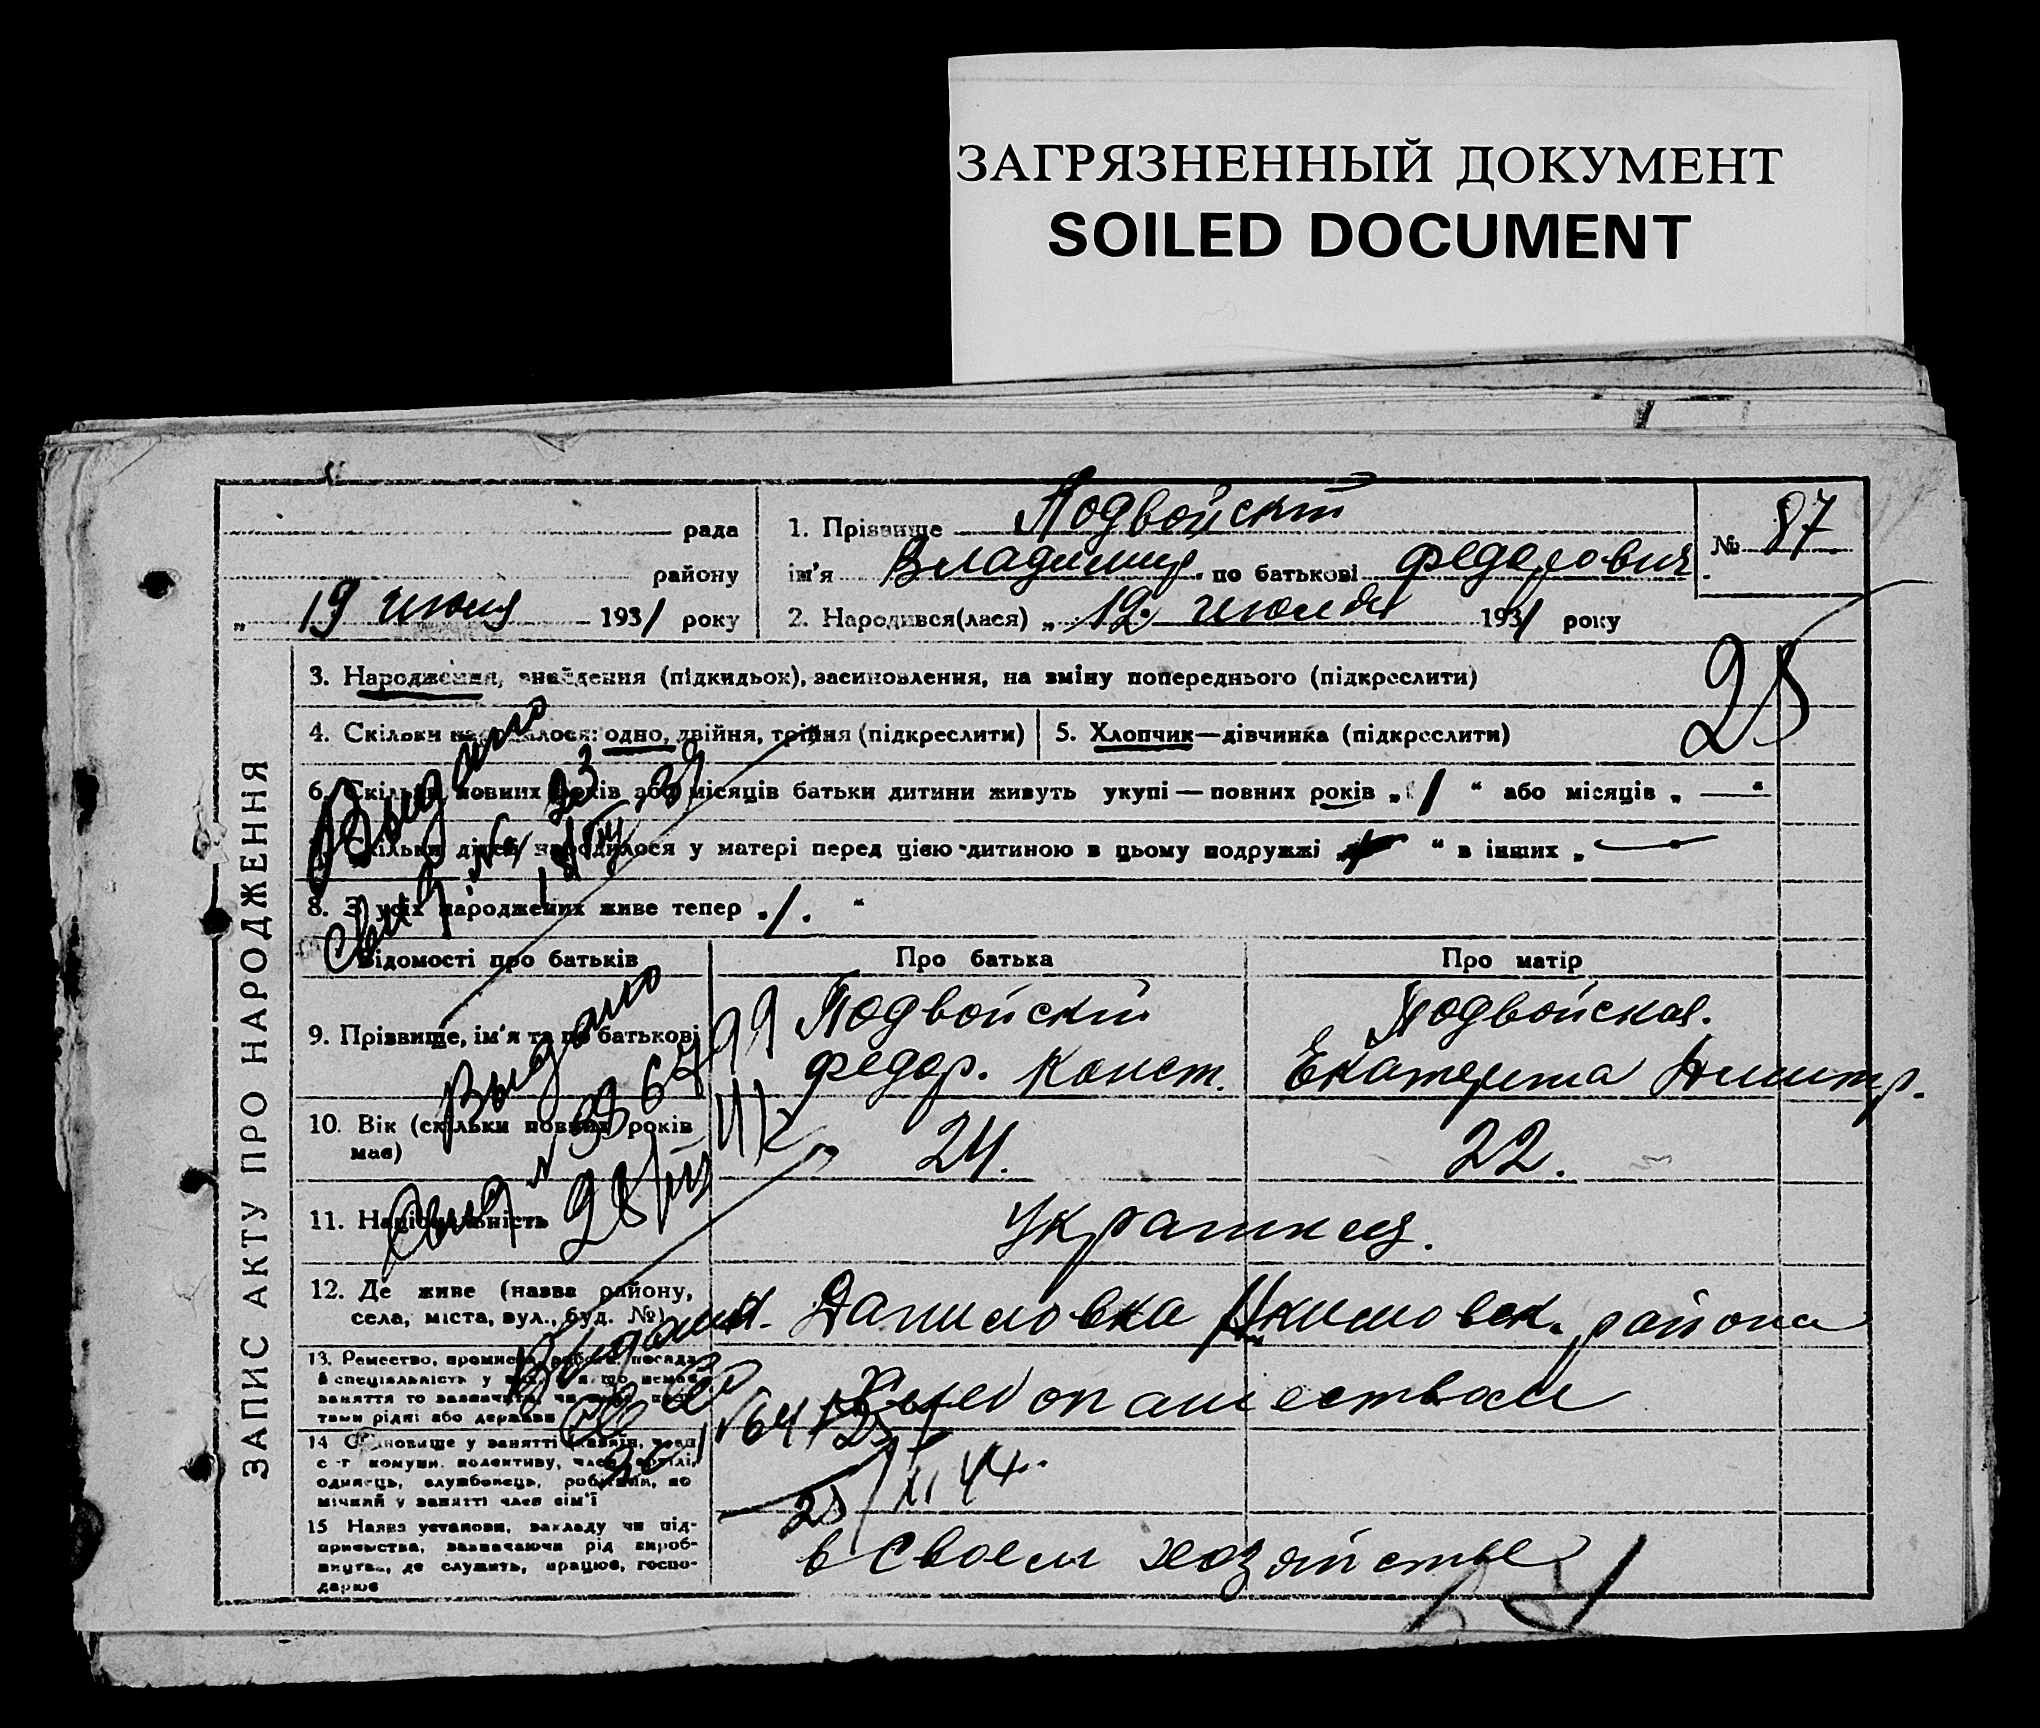 ЗАГРЯЗНЕННЫЙ ДОКУМЕНТ
SOILED DOCUMENT
ЗАПИС АКТУ ПРО НАРОДЖЕННЯ
рада
району
„ 19 июля 1931 року
1. Прізвище Подвойский
ім'я Владимир по батькові Федорович
2. Народився(лася) „ 12. июля 1931 року
№ 87
28
3. Народження, знайдення (підкидьок), засиновлення, на зміну попереднього (підкреслити)
4. Скільки народилося: одно, двійня, трійня (підкреслити)
5. Хлопчик—дівчинка (підкреслити)
6. Скільки повних років або місяців батьки дитини живуть укупі — повних років „ 1 “ або місяців „ — “
7. Скільки дітей народилося у матері перед цією дитиною в цьому подружжі „ “ в інших „ —
8. З усіх народжених живе тепер „ 1. “
Відомості про батьків
Про батька
Про матір
9. Прізвище, ім'я та по батькові
Подвойский
Федор. Конст.
Подвойская.
Екатерина Димитр.
10. Вік (скільки повних років має)
24.
22.
11. Національність
Украинцы.
12. Де живе (назва району,
села, міста, вул., буд. №)
Даниловка Акимовск. района
13. Ремество, промисел, робота, посада
й спеціяльність у
заняття то зазначити, чи
тами рідні або держави
Хлебопашеством
14 Становище у занятті
с.-г. комуни, колективу, член артілі,
одинець, службовець, робітник, по
мічний у занятті член сім'ї
15 Назва установи, закладу чи під-
приємства, зазначаючи рід вироб-
ництва, де служить, працює, госпо-
дарює
в своем хозяйстве
Выдано
Выдано
28/XI 44.